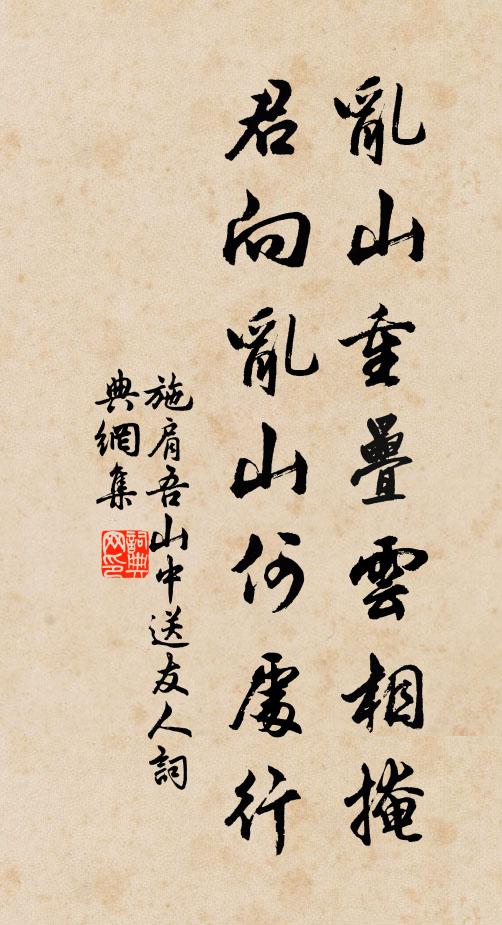 亂山重疊雲相掩
君向亂山何處行
施肩吾山中送友人詞
典網集
詞典
网印